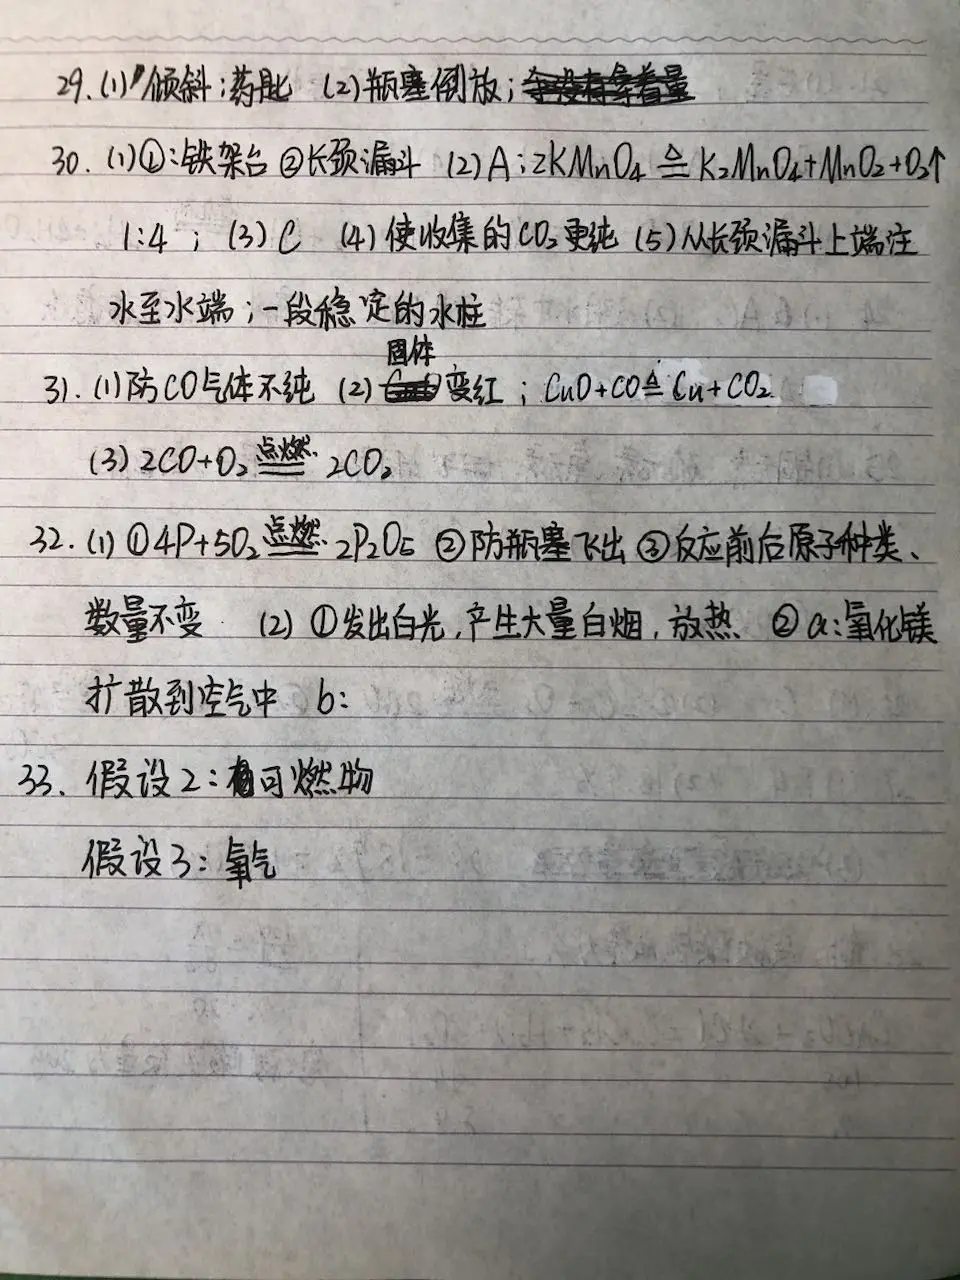 29.(1)倾斜；药匙 (2)瓶塞倒放；
30.(1)①：铁架台 ②长颈漏斗 (2)A；2KMnO₄ ≜ K₂MnO₄+MnO₂+O₂↑
1:4 ；(3)C (4)使收集的CO₂更纯 (5)从长颈漏斗上端注
水至水端；一段稳定的水柱
固体
31.(1)防CO气体不纯 (2) 变红；CuO+CO ≜ Cu+CO₂
点燃
(3) 2CO+O₂ = 2CO₂
点燃
32.(1)①4P+5O₂ = 2P₂O₅ ②防瓶塞飞出 ③反应前后原子种类、
数量不变 (2)①发出白光，产生大量白烟，放热 ②a：氧化镁
扩散到空气中 b：
33.假设2：可燃物
假设3：氧气